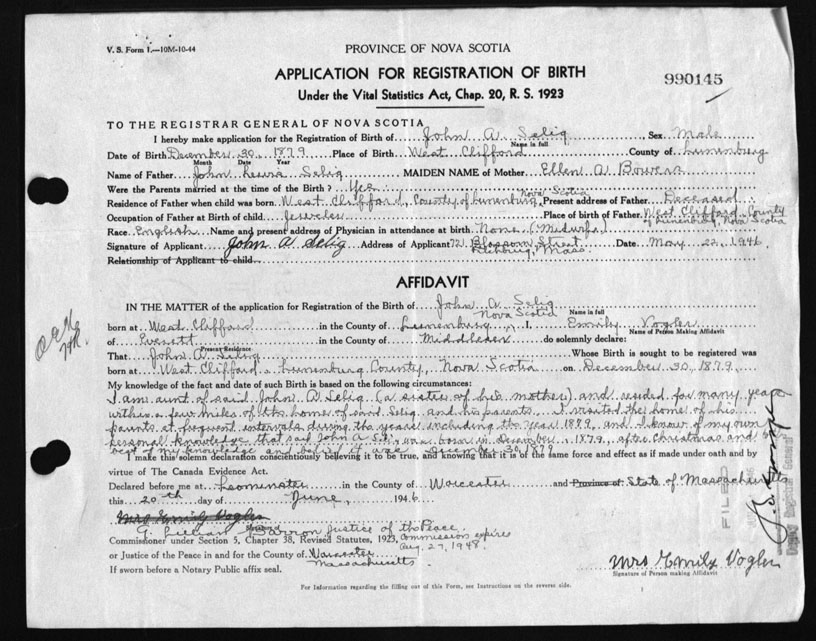 V. S. Form 1.—10M-10-44
PROVINCE OF NOVA SCOTIA
APPLICATION FOR REGISTRATION OF BIRTH
990145
Under the Vital Statistics Act, Chap. 20, R. S. 1923
TO THE REGISTRAR GENERAL OF NOVA SCOTIA
I hereby make application for the Registration of Birth of John A. Selig Sex Male
Name in full
Date of Birth December 30, 1879 Place of Birth West Clifford County of Lunenburg
Month Date Year
Name of Father John Lewis Selig MAIDEN NAME of Mother Ellen A. Bowers
Were the Parents married at the time of the Birth? Yes
Nova Scotia
Residence of Father when child was born West Clifford, County of Lunenburg, Present address of Father Deceased
Occupation of Father at Birth of child Jeweler Place of birth of Father West Clifford County
of Lunenburg, Nova Scotia
Race English Name and present address of Physician in attendance at birth None (Midwife)
Signature of Applicant John A Selig Address of Applicant 721 Blossom Street Date May 22, 1946
Fitchburg, Mass.
Relationship of Applicant to child
AFFIDAVIT
IN THE MATTER of the application for Registration of the Birth of John A. Selig
Nova Scotia Name in full
born at West Clifford in the County of Lunenburg, I, Emily Vogler
Name of Person Making Affidavit
of Everett in the County of Middlesex do solemnly declare:
Present Residence
That John A. Selig Whose Birth is sought to be registered was
born at West Clifford, Lunenburg County, Nova Scotia on December 30, 1879.
My knowledge of the fact and date of such Birth is based on the following circumstances:
I am aunt of said John A. Selig (a sister of his mother) and resided for many years
within a few miles of the home of said Selig and his parents. I visited the home of his
parents at frequent intervals during the years including the year 1879, and I know of my own
personal knowledge that said John A. Selig was born in December, 1879, after Christmas and to
best of my knowledge and belief it was December 30, 1879
I make this solemn declaration conscientiously believing it to be true, and knowing that it is of the same force and effect as if made under oath and by
virtue of The Canada Evidence Act.
Declared before me at Leominster in the County of Worcester and Province of State of Massachusetts
this 20th day of June, 1946
Mrs Emily Vogler
G. Lillian Barron Justice of the Peace.
Commissioner under Section 5, Chapter 38, Revised Statutes, 1923, Commission expires
Aug. 27, 1948.
or Justice of the Peace in and for the County of Worcester
Massachusetts
If sworn before a Notary Public affix seal.
Mrs Emily Vogler
Signature of Person making Affidavit
For Information regarding the filling out of this Form, see Instructions on the reverse side.
FILED
Deputy Registrar General